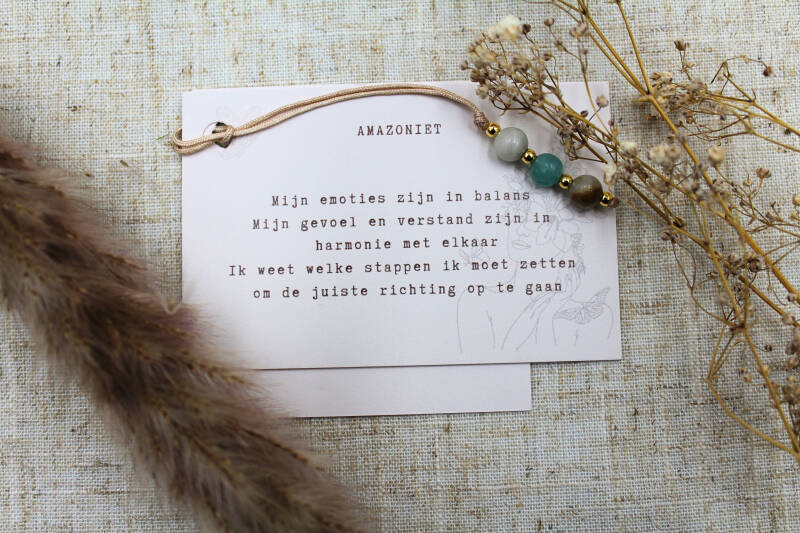 AMAZONIET
Mijn emoties zijn in balans
Mijn gevoel en verstand zijn in
harmonie met elkaar
Ik weet welke stappen ik moet zetten
om de juiste richting op te gaan